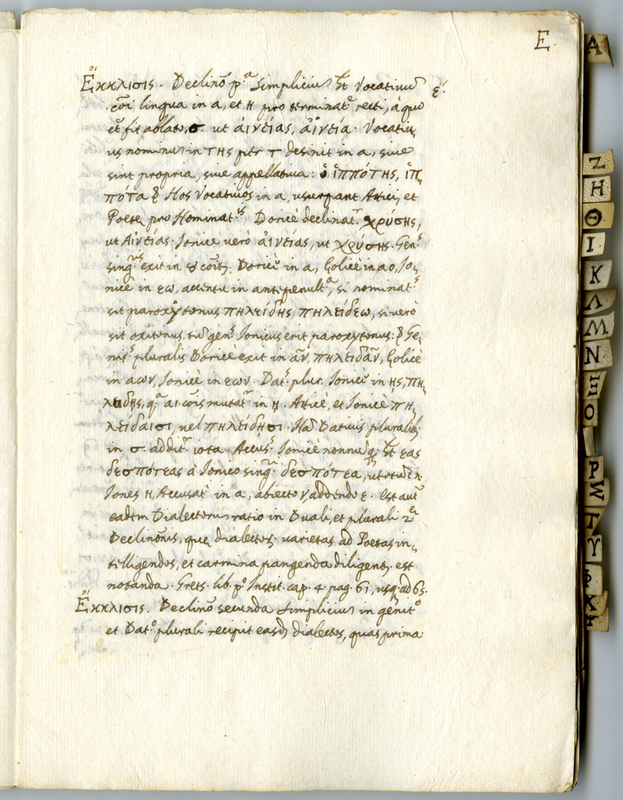 E
Ἔκκλισις. Declino͂ p.ᵃ simplicium ht Vocativu͂ ε
co͂i lingua in α, et η pro terminat.ᵉ recti, à quo
et fit ablato, σ. ut ἀινείας, ἀινεία. Vocativ,
us nominum in της per τ desinit in α, sive
sint propria, sive appellativa: ὁ ἱππότης, ἱπ-
πότα. Hos Vocativos in α, usurpant Attici, et
Poetæ pro Nominat.ⁱˢ Doricè declinat.ʳ χρύσης,
ut Αἰνείας, Ionicè verò ἀινείας, ut χρύσης. Gen.ˢ
sing.ⁱˢ exit in ου co͂it.ʳ, Doricus in α, Eolicè in αο, Io-
nicè in εω, accentu in antepenult.ᵃ, si nominat.ˢ
sit paroxytonus πηλείδης, πηλείδεω, si verò
sit oxitonus, tu͂ gen.ˢ Ionicus erit paroxytonus. Ge-
nit.ˢ pluralis Doricè exit in ᾶν, πηλειδᾶν, Eolicè
in αων, Ionicè in εων. Dat.ˢ plur. Ionicus in ης, πη-
λείδης, q.ᵃ αι co͂is mutat.ʳ in η. Atticè, et Ionicè πη-
λείδαισι, vel πηλείδησι. Na͂ Dativis pluralib.
in σ. addit.ʳ iota. Accus.ˢ Ionicè nonnu͂q. ht εας
δεσπότεας à Ionico sing.ʳⁱ δεσπότεα,
Iones η Accusat.ⁱ in α, abiecto ν addendo ε. Est aut͂
eadem Dialectorum ratio in Duali, et plurali 2.ᵃ
Declinonis, quæ dialector. varietas ad Poetas in-
telligendos, et carmina pangenda diligent.ʳ est
notanda. Grets. lib. p.º Instit. cap. 4. pag. 61, usq. ad 65.
Ἔκκλισις. Declino͂ secunda simplicium in genit.º
et Dat.º plurali recipit easd. dialectos, quas prima
Α
Ζ
Η
Θ
Ι
Κ
Λ
Μ
Ν
Ξ
Ο
Ρ
Σ
Τ
Υ
Φ
Χ